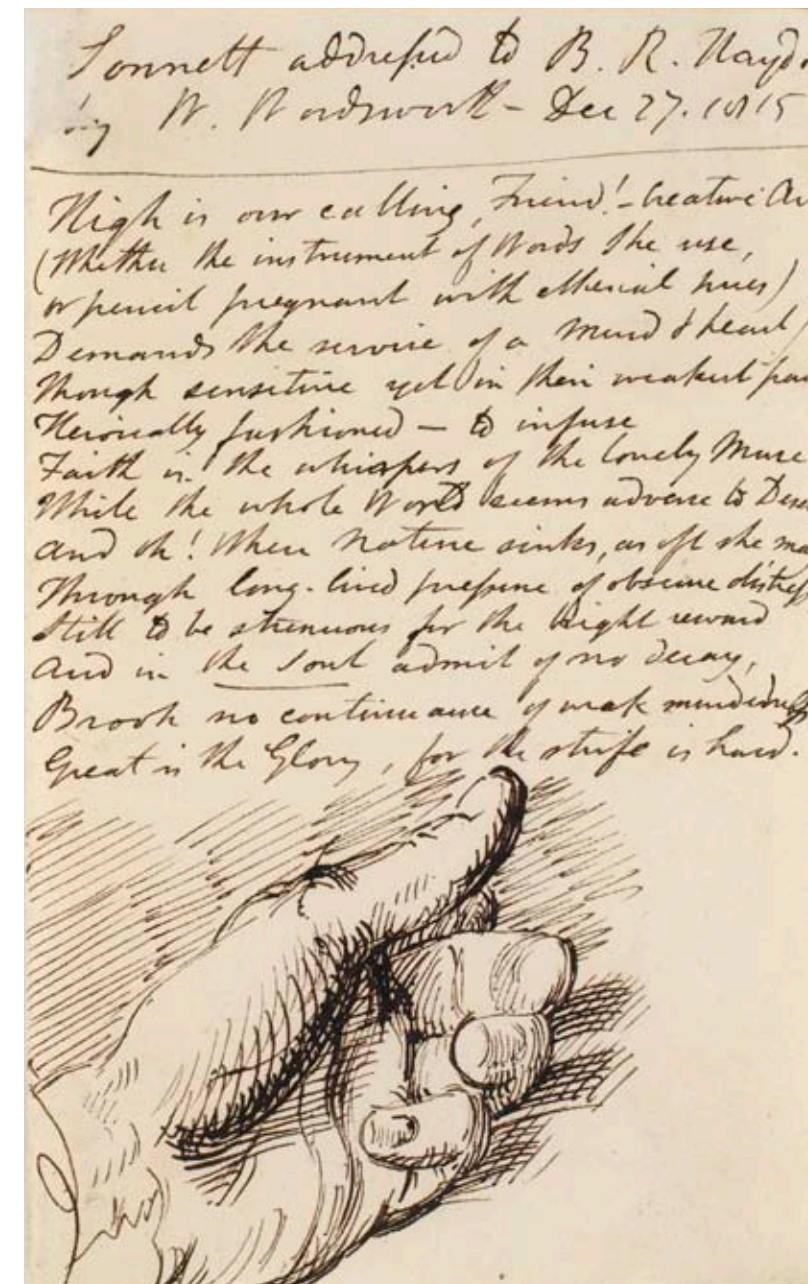 Sonnett addressed to B. R. Hayd
by W. Wordsworth - Dec 27. 1815
High is our calling, Friend! - Creative Ar
(Whether the instrument of Words She use,
or pencil pregnant with etherial hues)
Demands the service of a mind & heart
Though sensitive yet in their weakest par
Heroically fashioned — to infuse
Faith in the whispers of the lonely Muse
While the whole World seems adverse to Dese
And oh! When Nature sinks, as oft she ma
Through long-lived pressure of obscure distress
Still to be strenuous for the bright reward
And in the Soul admit of no decay,
Brook no continuance of weak mindedness
Great is the Glory, for the strife is hard.